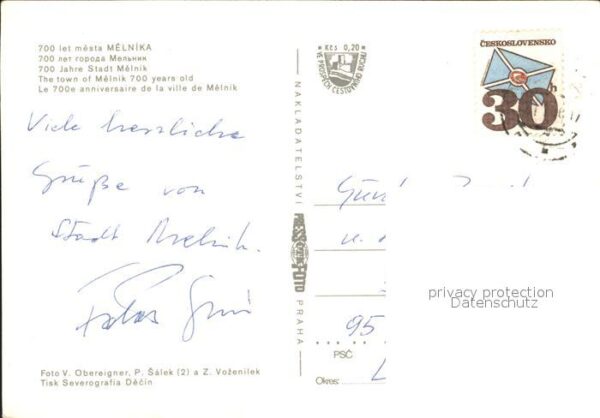 700 let města MĚLNÍKA
700 лет города Мельник
700 Jahre Stadt Mělník
The town of Mělník 700 years old
Le 700e anniversaire de la ville de Mělník
Viele herzliche
Grüße von
Stadt Melnik.
Foto V. Obereigner, P. Šálek (2) a Z. Voženílek
Tisk Severografia Děčín
NAKLADATELSTVÍ
PRESSFOTO
PRAHA
Kčs 0,20
VE PROSPĚCH CESTOVNÍHO RUCHU
ČESKOSLOVENSKO
30h
95
PSČ
Okres:
privacy protection
Datenschutz